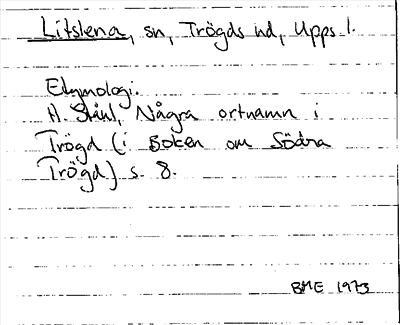 Litslena, sn, Trögds hd, Upps l.
Etymologi.
H. Ståhl, Några ortnamn i
Trögd (i Boken om Södra
Trögd) s. 8.
BME 1973